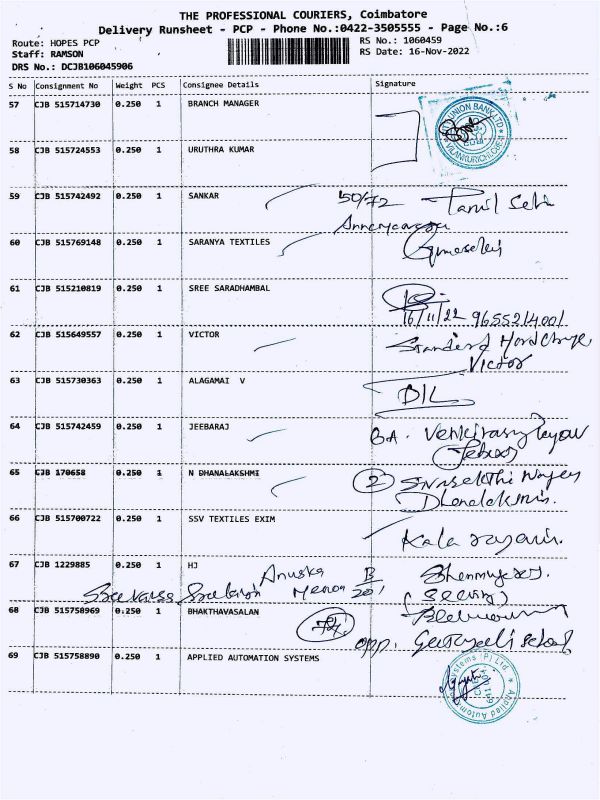 THE PROFESSIONAL COURIERS, Coimbatore
Delivery Runsheet - PCP - Phone No.:0422-3505555 - Page No.:6
Route: HOPES PCP
RS No.: 1060459
Staff: RAMSON
RS Date: 16-Nov-2022
DRS No.: DCJB106045906
S No Consignment No Weight PCS Consignee Details Signature
57 CJB 515714730 0.250 1 BRANCH MANAGER
UNION BANK LTD
58 CJB 515724553 0.250 1 URUTHRA KUMAR
59 CJB 515742492 0.250 1 SANKAR 50/72 Tamil Selvi
60 CJB 515769148 0.250 1 SARANYA TEXTILES
61 CJB 515210819 0.250 1 SREE SARADHAMBAL
16/11/22 9655214001
62 CJB 515649557 0.250 1 VICTOR
Victor
63 CJB 515730363 0.250 1 ALAGAMAI V
64 CJB 515742459 0.250 1 JEEBARAJ
65 CJB 170658 0.250 1 N DHANALAKSHMI 2
66 CJB 515700722 0.250 1 SSV TEXTILES EXIM
Kala
67 CJB 1229885 0.250 1 HJ Anuska B
Menon 201
68 CJB 515758969 0.250 1 BHAKTHAVASALAN
opp.
69 CJB 515758890 0.250 1 APPLIED AUTOMATION SYSTEMS
Applied Autom Systems (P) Ltd